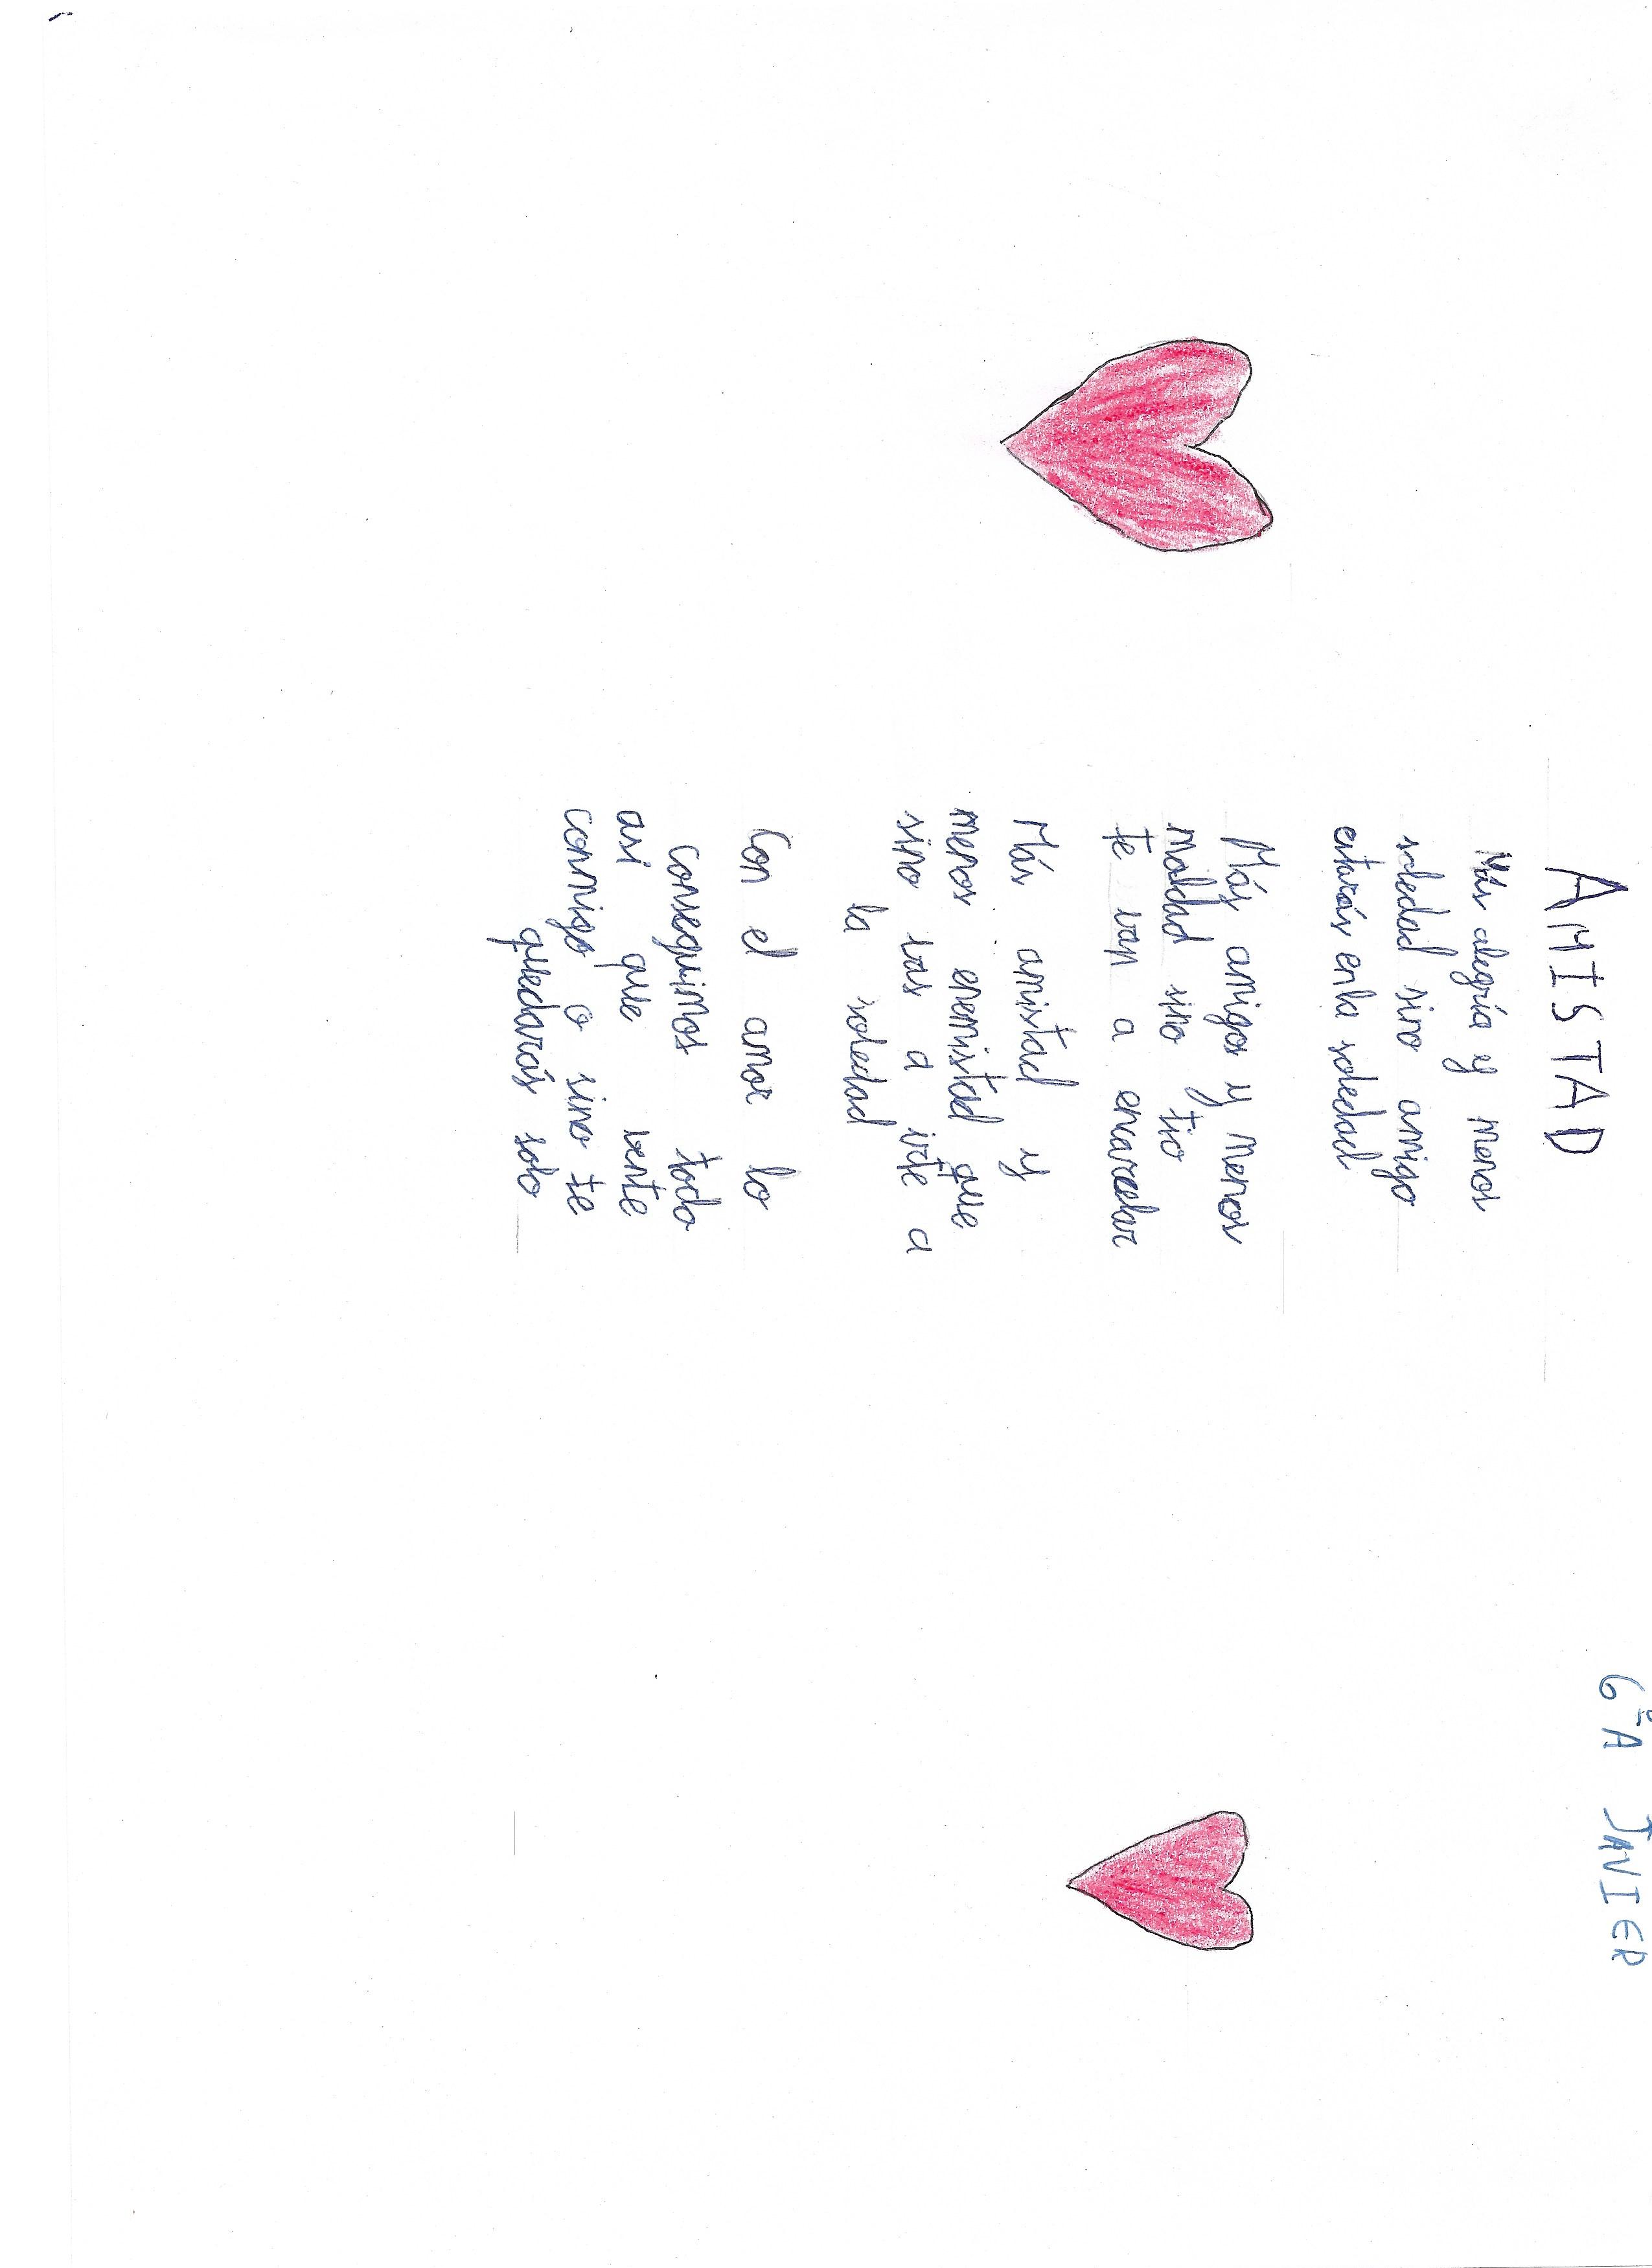 6ºA JAVIER
AMISTAD
Más alegría y menos
soledad sino amigo
estarás en la soledad
Más amigos y menos
maldad sino tio
te van a encarcelar
Más amistad y
menos enemistad que
sino vas a irte a
la soledad
Con el amor lo
conseguimos todo
asi que vente
conmigo o sino te
quedarás solo